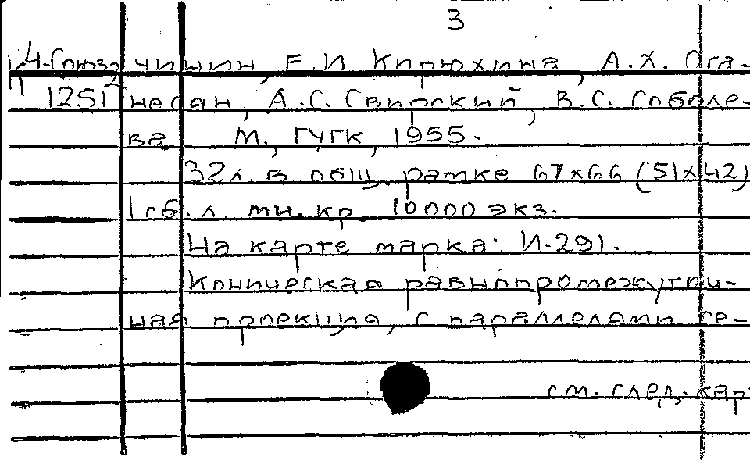 3
4-Союз чишин, Е.И. Кирюхина, А.Х. Ога-
1251 несян, А.С. Свирский, В.С. Соболе-
ва. М., ГУГК, 1955.
32л. в общ. рамке 67х66 (51х42)
1 сб. л. мн. кр. 10000 экз.
На карте марка: И-291.
Коническая равнопромежуточ-
ная проекция, с параллелями се-
см. след. кар